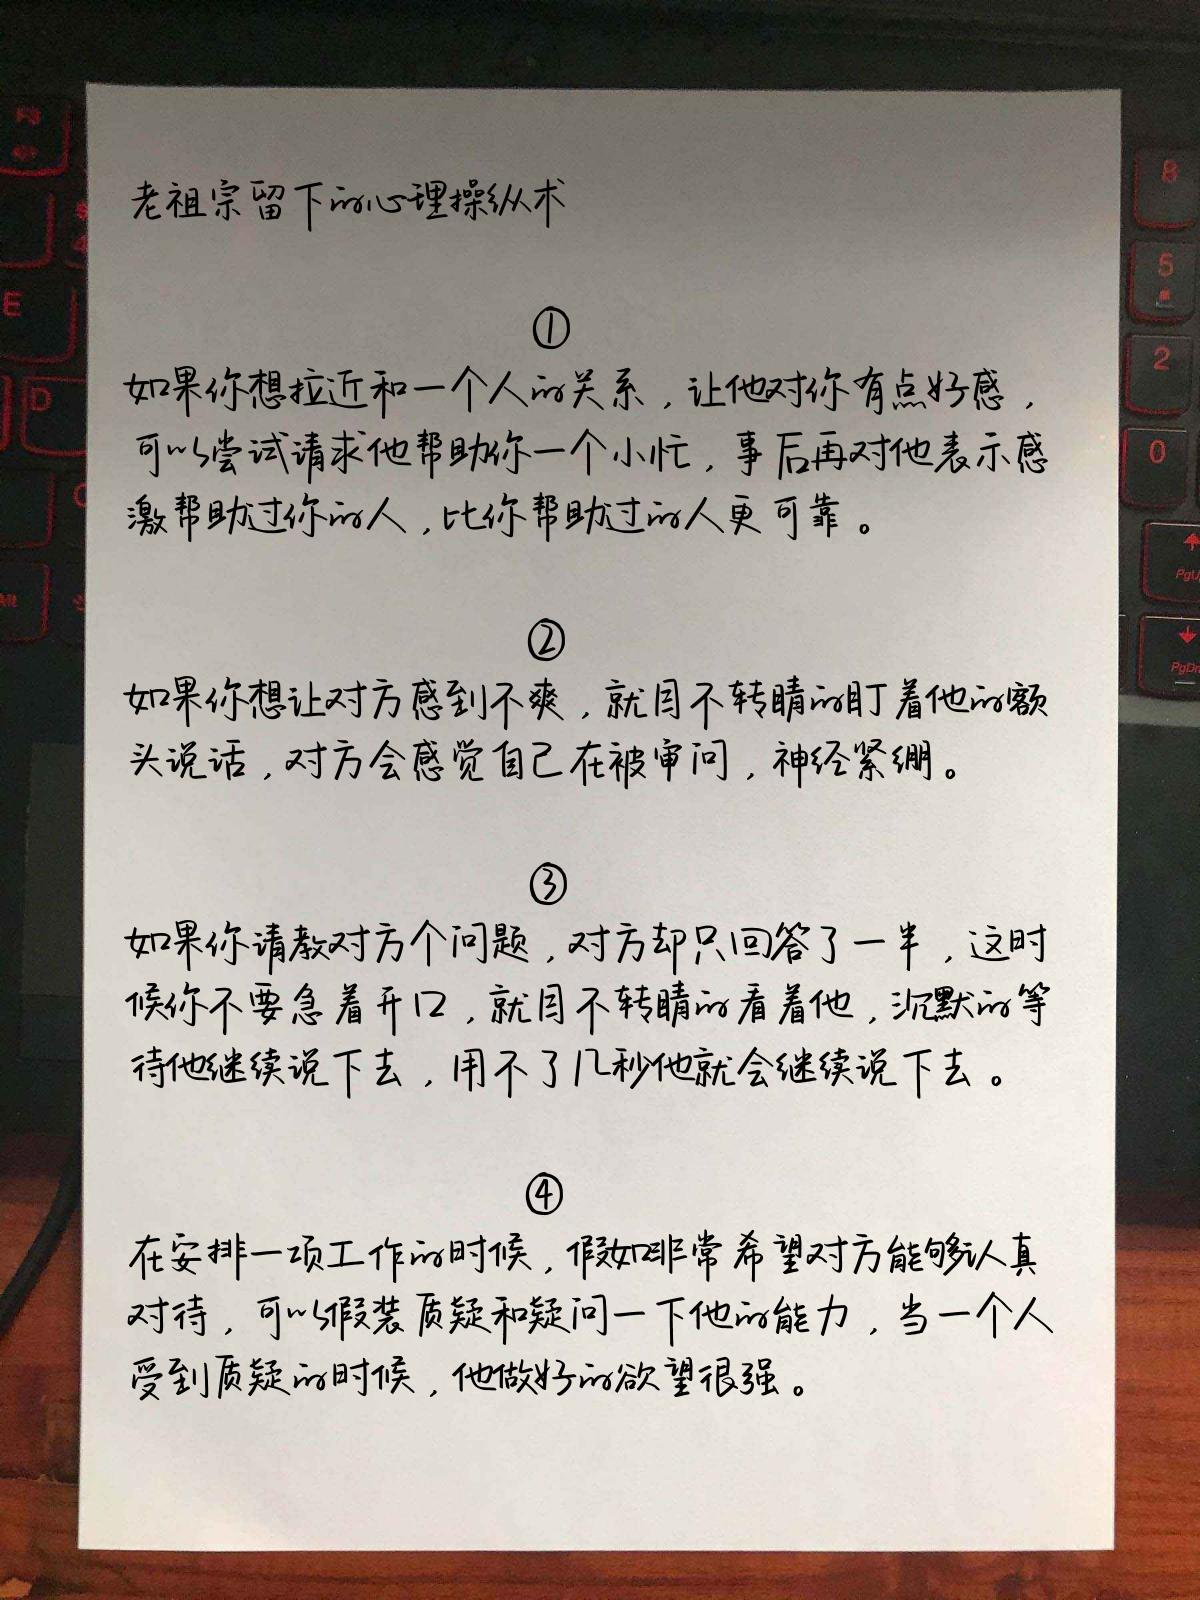 老祖宗留下的心理操纵术
①
如果你想拉近和一个人的关系，让他对你有点好感，
可以尝试请求他帮助你一个小忙，事后再对他表示感
激帮助过你的人，比你帮助过的人更可靠。
②
如果你想让对方感到不爽，就目不转睛的盯着他的额
头说话，对方会感觉自己在被审问，神经紧绷。
③
如果你请教对方个问题，对方却只回答了一半，这时
候你不要急着开口，就目不转睛的看着他，沉默的等
待他继续说下去，用不了几秒他就会继续说下去。
④
在安排一项工作的时候，假如非常希望对方能够认真
对待，可以假装质疑和疑问一下他的能力，当一个人
受到质疑的时候，他做好的欲望很强。
E
D
8
5
2
0
PgU
PgDn